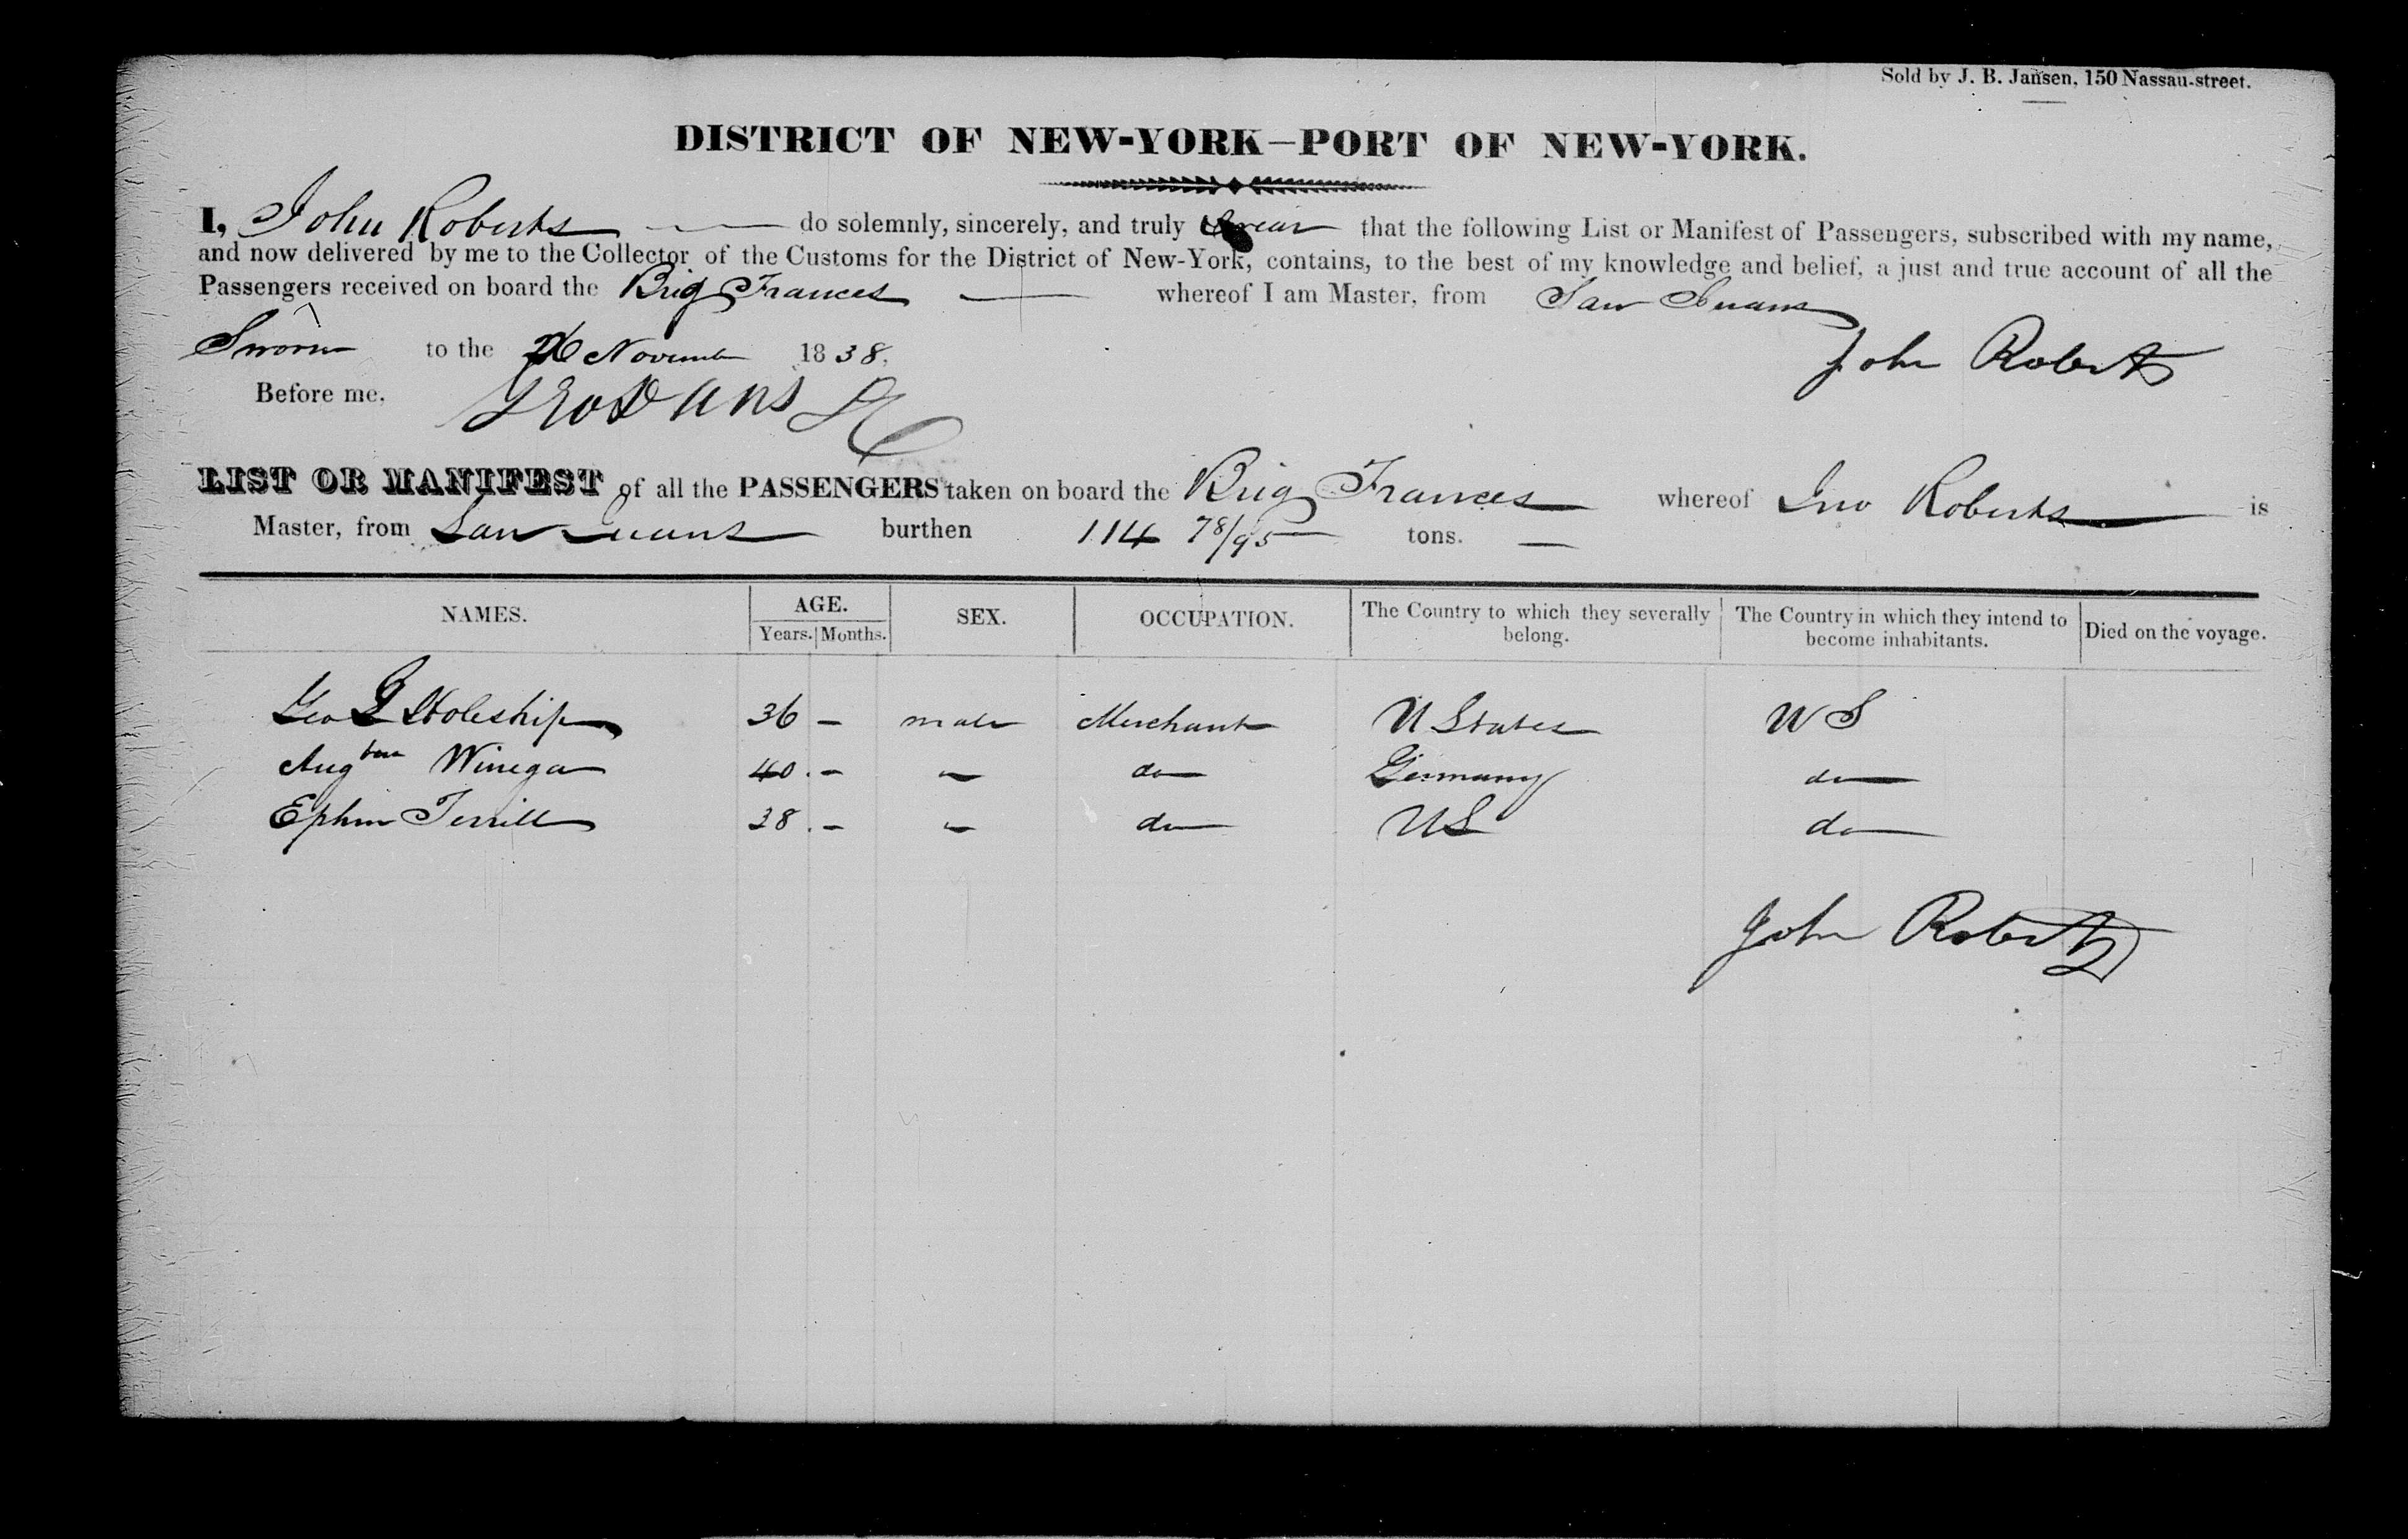 Sold by J. B. Jansen, 150 Nassau-street.
DISTRICT OF NEW-YORK—PORT OF NEW-YORK.
I, John Roberts do solemnly, sincerely, and truly Swear that the following List or Manifest of Passengers, subscribed with my name,
and now delivered by me to the Collector of the Customs for the District of New-York, contains, to the best of my knowledge and belief, a just and true account of all the
Passengers received on board the Brig Frances whereof I am Master, from San Juans
Sworn to the 26 November 1838.
John Roberts
Before me,
LIST OR MANIFEST of all the PASSENGERS taken on board the Brig Frances whereof Jno Roberts is
Master, from San Juans burthen 114 78/95 tons.
NAMES. AGE. SEX. OCCUPATION. The Country to which they severally belong. The Country in which they intend to become inhabitants. Died on the voyage.
Years. Months.
Geo 36 – male Merchant U States U S
Winega 40 – " do Germany do
Ephm Terrill 38 – " do U S do
John Roberts